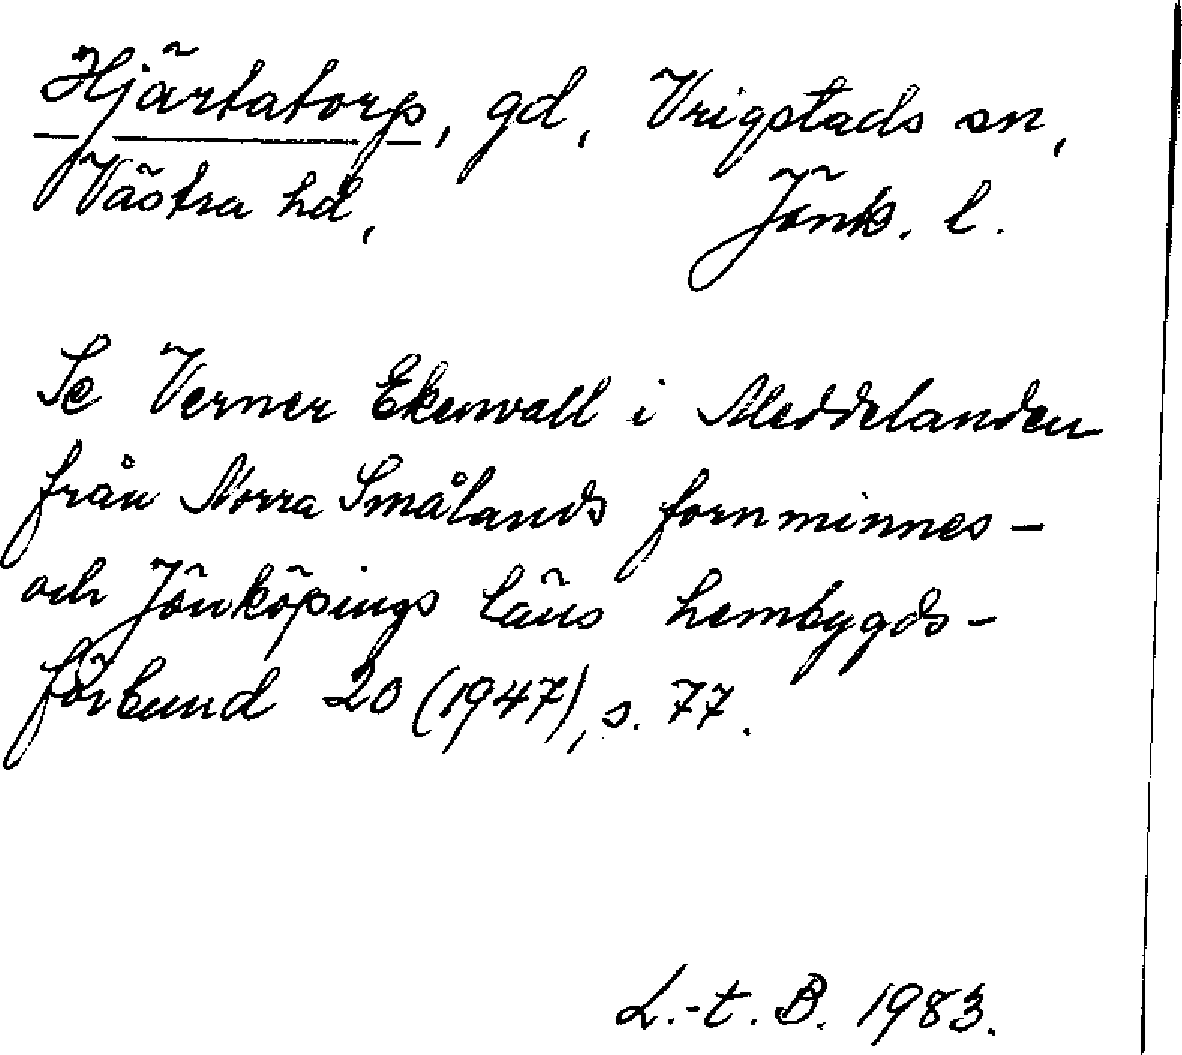 Hjärtatorp, gd, Vrigstads sn,
Västra hd, Jönk. l.
Se Verner Ekenvall i Meddelanden
från Norra Smålands fornminnes-
och Jönköpings läns hembygds-
förbund 20 (1947), s. 77.
L.-t. B. 1983.